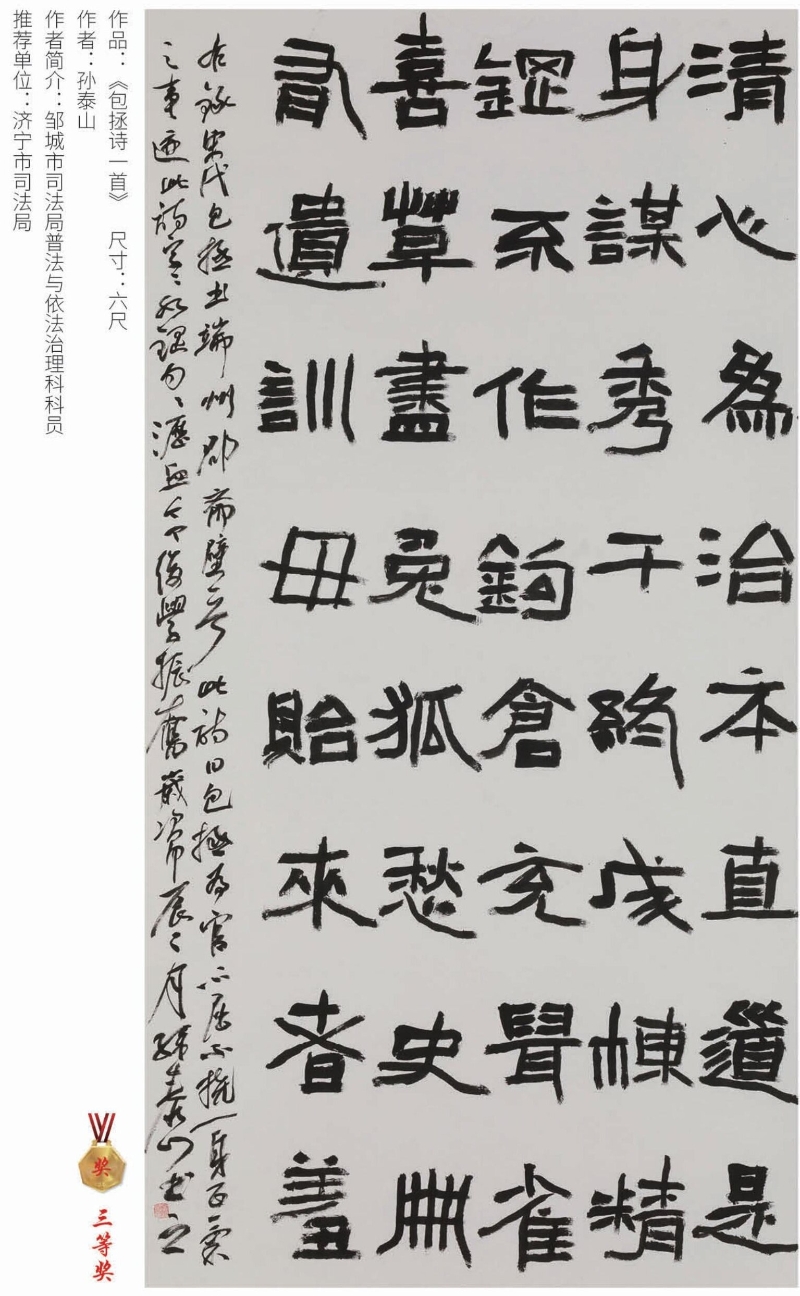 清心為治本直道是
身謀秀干終成棟精
鋼不作鉤倉充鼠雀
喜草盡兔狐愁史冊
有遺訓毋貽來者羞
右錄宋代包拯書端州郡齋壁 此詩曰包拯為官心居不撓一身正氣
之事迹此詩字句瀝血令後學振奮歲次甲辰二月孫泰山書之
作品：《包拯诗一首》 尺寸：六尺
作者：孙泰山
作者简介：邹城市司法局普法与依法治理科科员
推荐单位：济宁市司法局
奖
三等奖